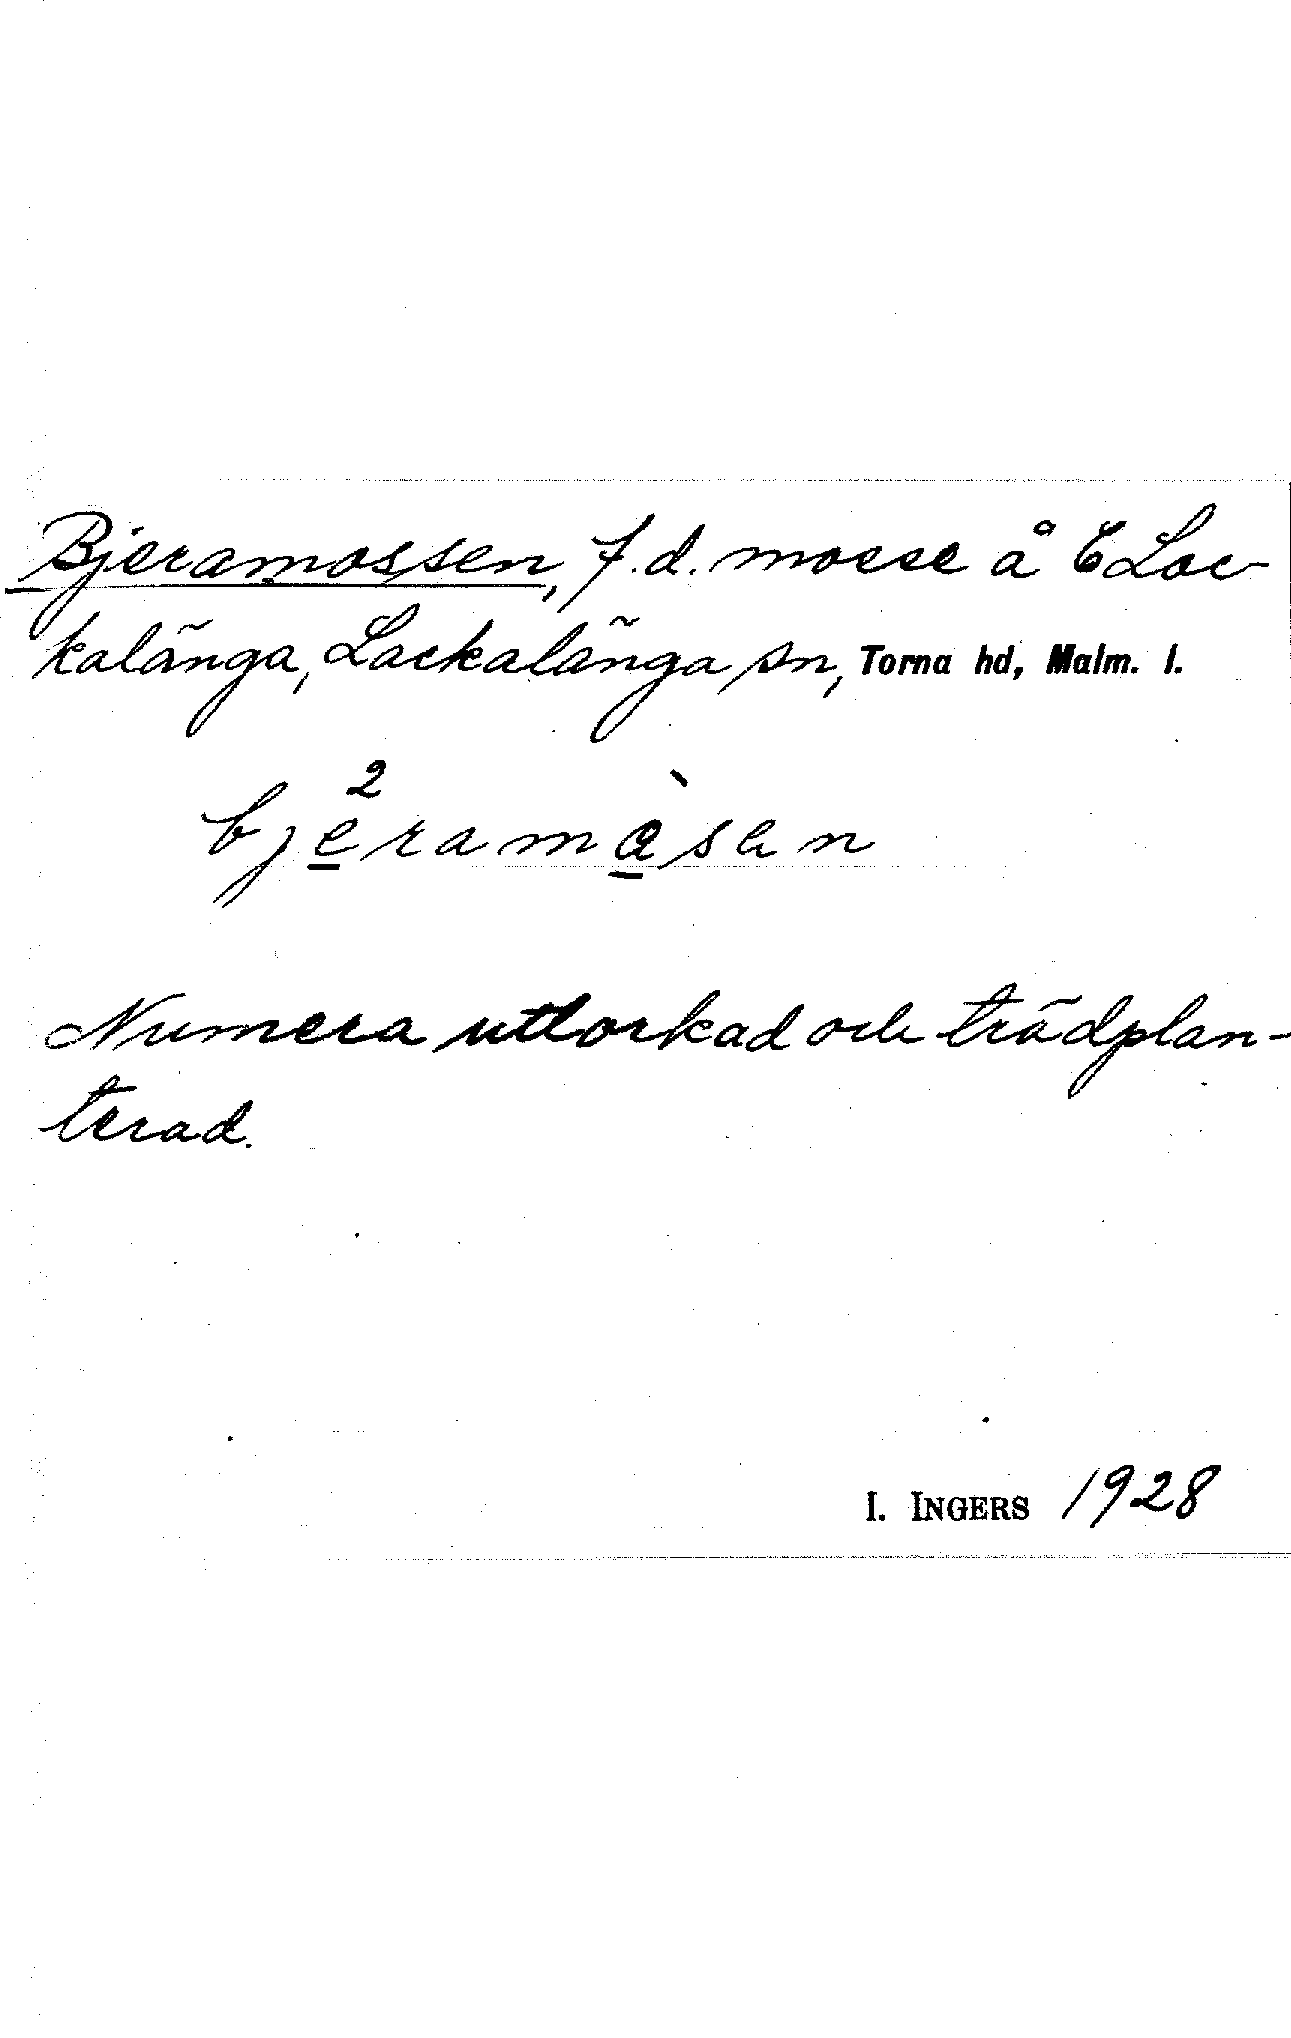 Bjeramossen, f.d. mosse å 6 Lac-
kalänga, Lackalänga sn, Torna hd, Malm. l.
Numera uttorkad och trädplan-
terad.
I. INGERS 1928